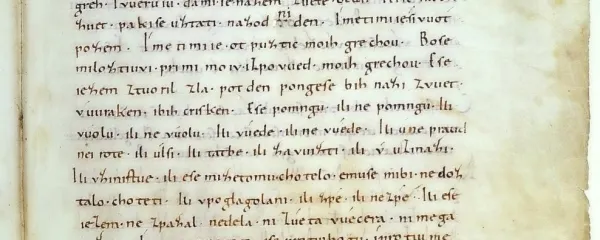 greh. I vueruiu. da mi ie nazem. zuete
zuet. pakise uztati. nazodni den. Imeti mi ie sivuot
pozem. Imeti mi ie. ot puztic moih grechou. Bose
miloztivvi. primi moiv. izpovued. moih grechou. Ese
iezem ztuoril zla. pot den pongese bih nazi zvuet.
vuuraken. ibih crisken. Ese pomngu. ili ne pomngu. Ili
vuolu. ili ne vuolu. Ili vuede. ili ne vuede. Ili u ne praud
nei rote. ili ulsi. Ili tatbe. ili zavuizti. ili v uzmazi.
Ili vzinistue. ili ese mi ze tomu. chotelo. emuse mi bi. ne doz
talo. choteti. Ili vpoglagolani. ili zpe. ili ne zpe. Ili ese
iezem. ne zpazal. nedela. ni zueta vuecera. ni mega